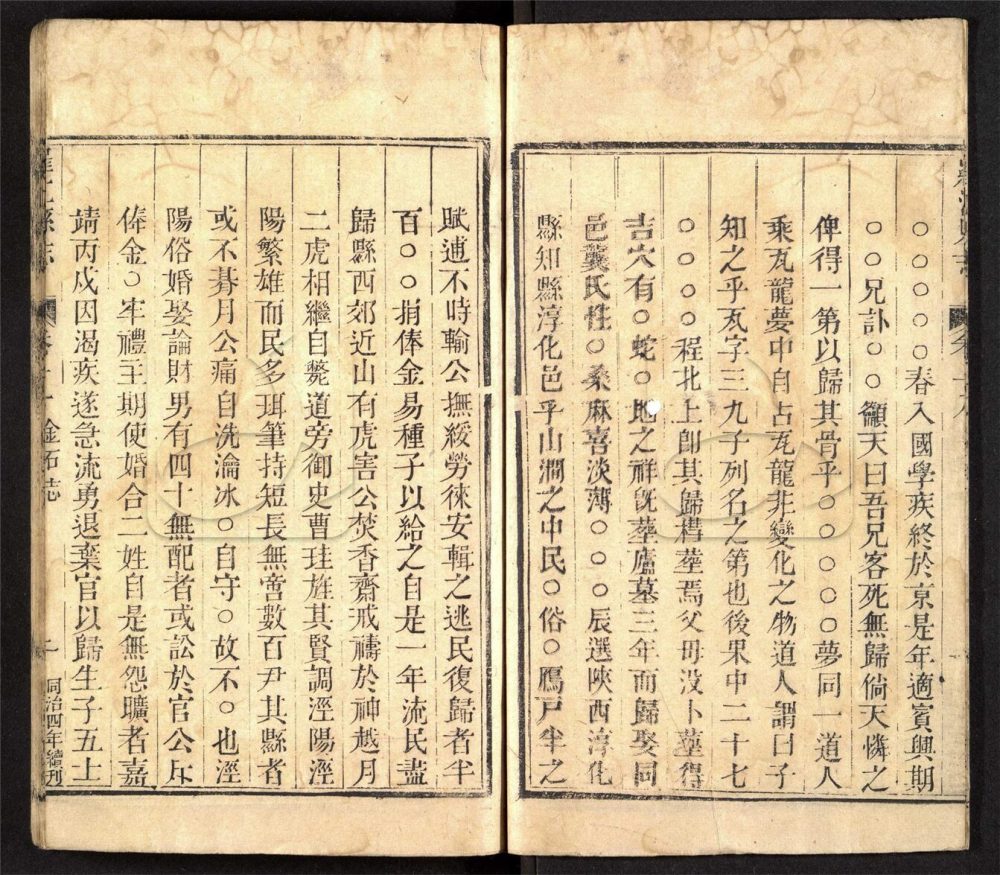 ○○○○○春入國學疾終於京是年適賓興期
○○兄訃○○籲天曰吾兄客死無歸倘天憐之
俾得一第以歸其骨乎○○○○○夢同一道人
乘瓦龍夢中自占瓦龍非變化之物道人謂曰子
知之乎瓦字三九子列名之第也後果中二十七
○○○○程北上卽其歸櫬塟焉父母没卜塟得
吉穴有○蛇○地之祥旣塟廬墓三年而歸娶同
邑龔氏性○桑麻喜淡薄○○○辰選陜西淳化
縣知縣淳化邑乎山澗之中民○俗○鴈戸半之
賦逋不時輸公撫綏勞徠安輯之逃民復歸者半
百○○捐俸金易種子以給之自是一年流民盡
歸縣西郊近山有虎害公焚香齋戒禱於神越月
二虎相繼自斃道旁御史曹珪旌其賢調涇陽涇
陽繁雄而民多珥筆持短長無啻數百尹其縣者
或不朞月公痛自洗瀹冰○自守○故不○也涇
陽俗婚娶論財男有四十無配者或訟於官公斥
俸金○牢禮主期使婚合二姓自是無怨曠者嘉
靖丙戍因渴疾遂急流勇退棄官以歸生子五上
縣志
金石志
同治四年續刊